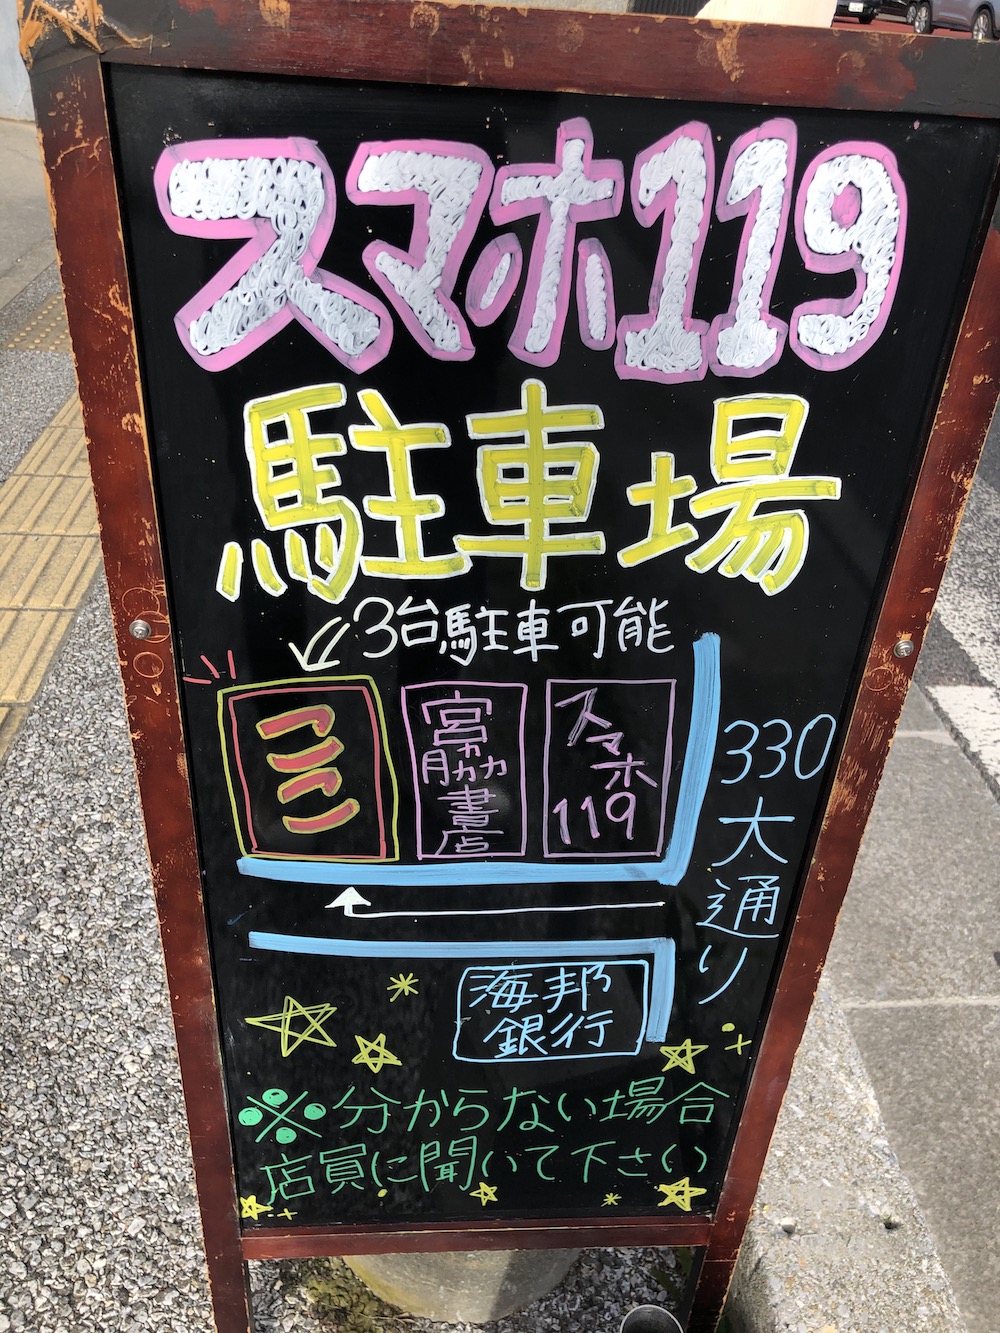 スマホ119
駐車場
3台駐車可能
ココ
宮脇書店
スマホ119
330大通り
海邦
銀行
※分からない場合
店員に聞いて下さい